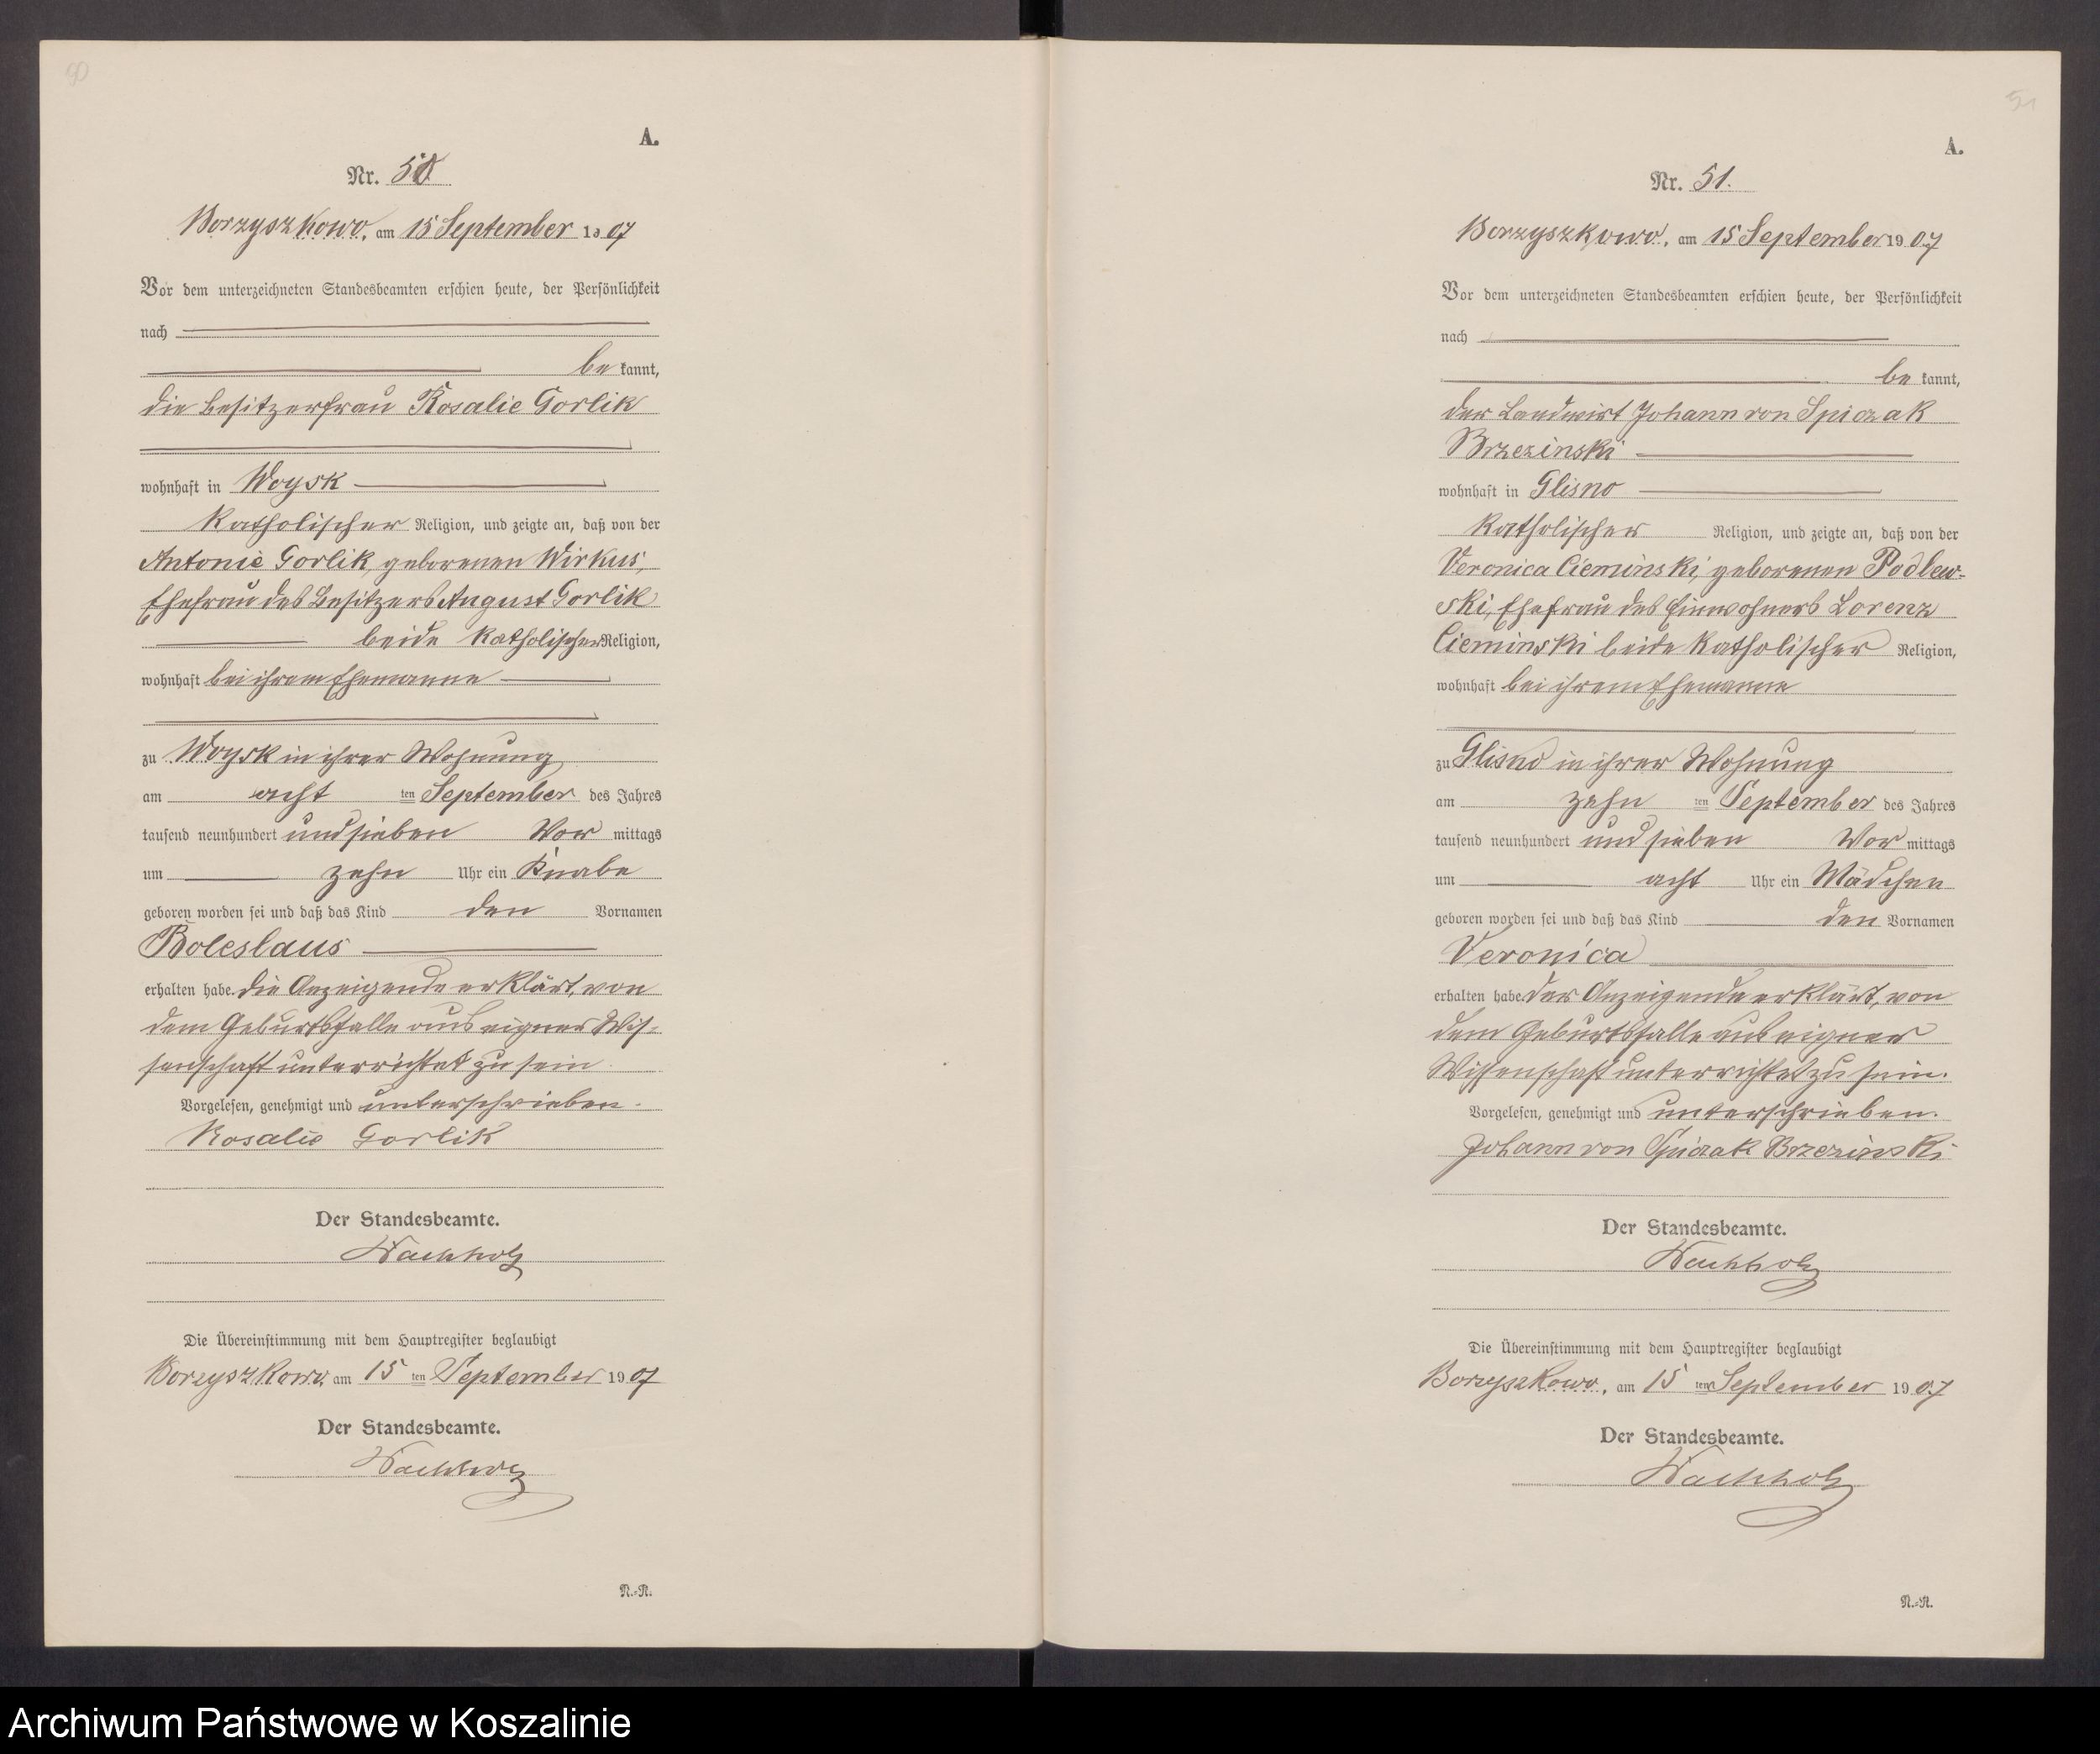 50
A.
Nr. 50
Borzyszkowo, am 15 September 1907
Vor dem unterzeichneten Standesbeamten erschien heute, der Persönlichkeit
nach
be kannt,
die Besitzerfrau Rosalie Gorlik
wohnhaft in Woysk
katholischer Religion, und zeigte an, daß von der
Antonie Gorlik, geborenen Wirkus,
Ehefrau des Besitzers August Gorlik
beide katholischer Religion,
wohnhaft bei ihrem Ehemanne
zu Woysk in ihrer Wohnung
am acht ten September des Jahres
tausend neunhundert und sieben Vor mittags
um zehn Uhr ein Knabe
geboren worden sei und daß das Kind den Vornamen
Boleslaus
erhalten habe. Die Anzeigende erklärt, von
dem Geburtsfalle aus eigner Wis-
senschaft unterrichtet zu sein.
Vorgelesen, genehmigt und unterschrieben.
Rosalie Gorlik
Der Standesbeamte.
Wachholz
Die Übereinstimmung mit dem Hauptregister beglaubigt
Borzyszkowo, am 15 ten September 1907
Der Standesbeamte.
Wachholz
N.=R.
51
A.
Nr. 51.
Borzyszkowo, am 15 September 1907
Vor dem unterzeichneten Standesbeamten erschien heute, der Persönlichkeit
nach
be kannt,
der Landwirt Johann von Spiczak
Brzezinski
wohnhaft in Glisno
katholischer Religion, und zeigte an, daß von der
Veronica Cieminski, geborenen Podlew-
ski, Ehefrau des Einwohners Lorenz
Cieminski beide katholischer Religion,
wohnhaft bei ihrem Ehemanne
zu Glisno in ihrer Wohnung
am zehn ten September des Jahres
tausend neunhundert und sieben Vor mittags
um acht Uhr ein Mädchen
geboren worden sei und daß das Kind den Vornamen
Veronica
erhalten habe. Der Anzeigende erklärt, von
dem Geburtsfalle aus eigner
Wissenschaft unterrichtet zu sein.
Vorgelesen, genehmigt und unterschrieben.
Johann von Spiczak Brzezinski
Der Standesbeamte.
Wachholz
Die Übereinstimmung mit dem Hauptregister beglaubigt
Borzyszkowo, am 15 ten September 1907
Der Standesbeamte.
Wachholz
N.=R.
Archiwum Państwowe w Koszalinie